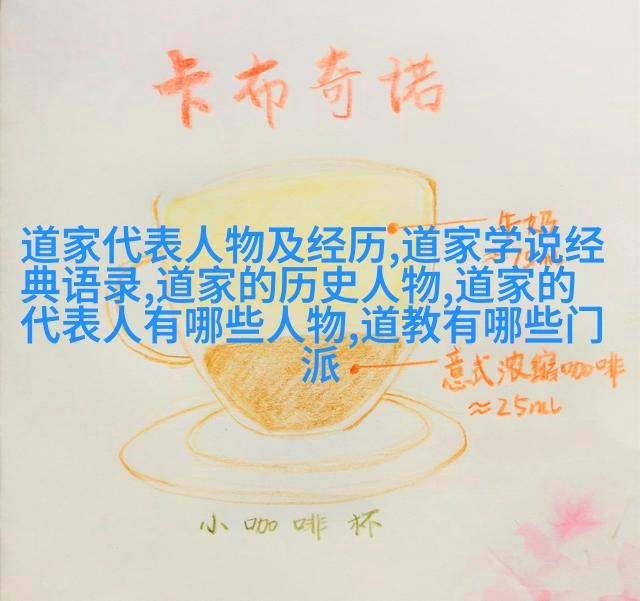 卡布奇诺
道家代表人物及经历,道家学说经
典语录,道家的历史人物,道家的
代表人有哪些人物,道教有哪些门
派
意式浓缩咖啡
≈25ml
小咖啡杯